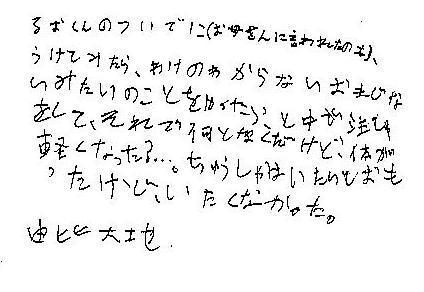 るおくんのついでに(お母さんに言われたのも)、
うけてみたら、わけのわからないおまじな
いみたいのことを
をして、それで何となくだけど、体が
軽くなった?…。ちゅうしゃはいたいとおも
ったけど、いたくなかった。
大地